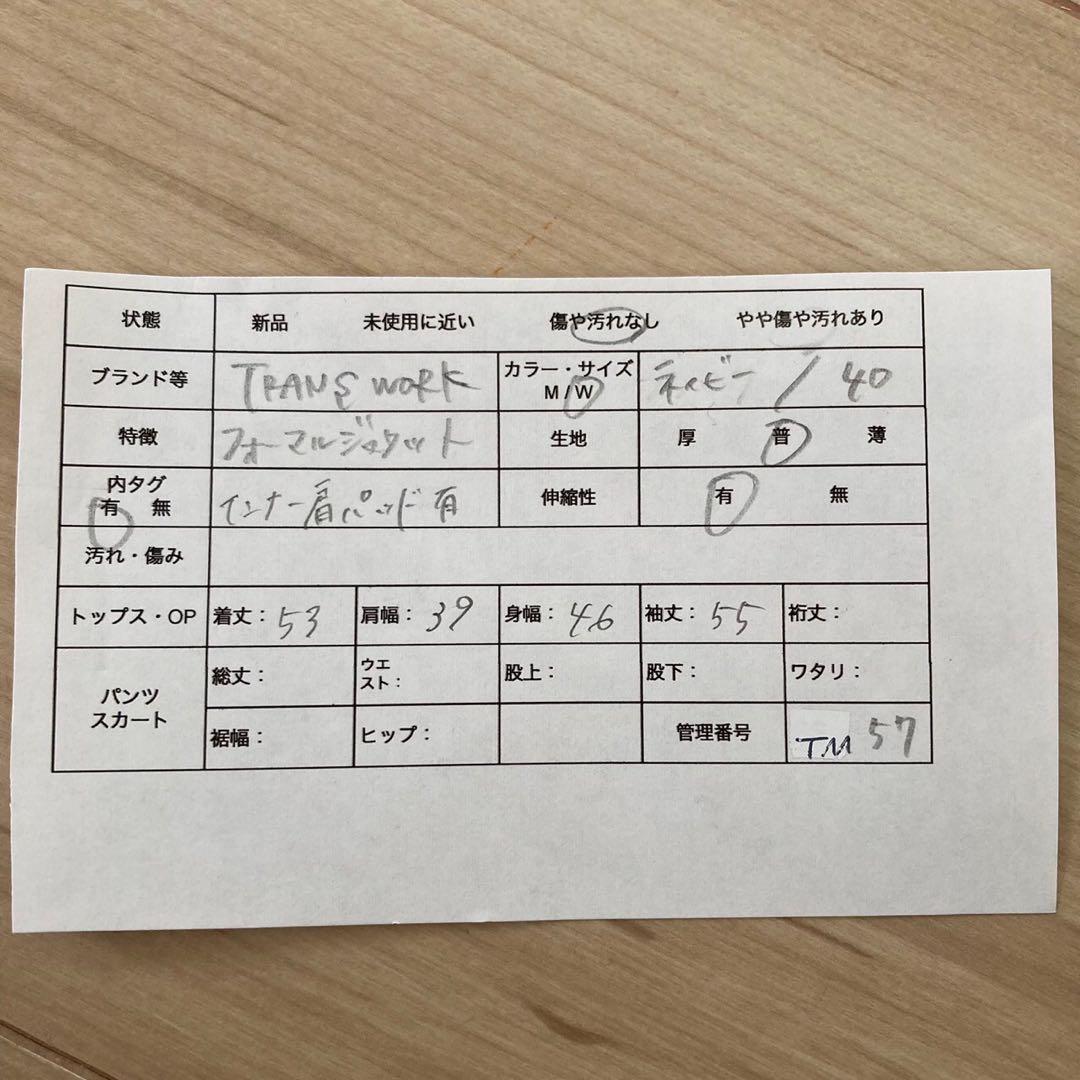 状態 新品 未使用に近い 傷や汚れなし やや傷や汚れあり
ブランド等 TRANS WORK カラー・サイズ M / W ネイビー / 40
特徴 フォーマルジャケット 生地 厚 普 薄
内タグ 有 無 インナー肩パッド有 伸縮性 有 無
汚れ・傷み
トップス・OP 着丈: 53 肩幅: 39 身幅: 46 袖丈: 55 裄丈:
パンツ スカート 総丈: ウエスト: 股上: 股下: ワタリ:
裾幅: ヒップ: 管理番号 TM 57